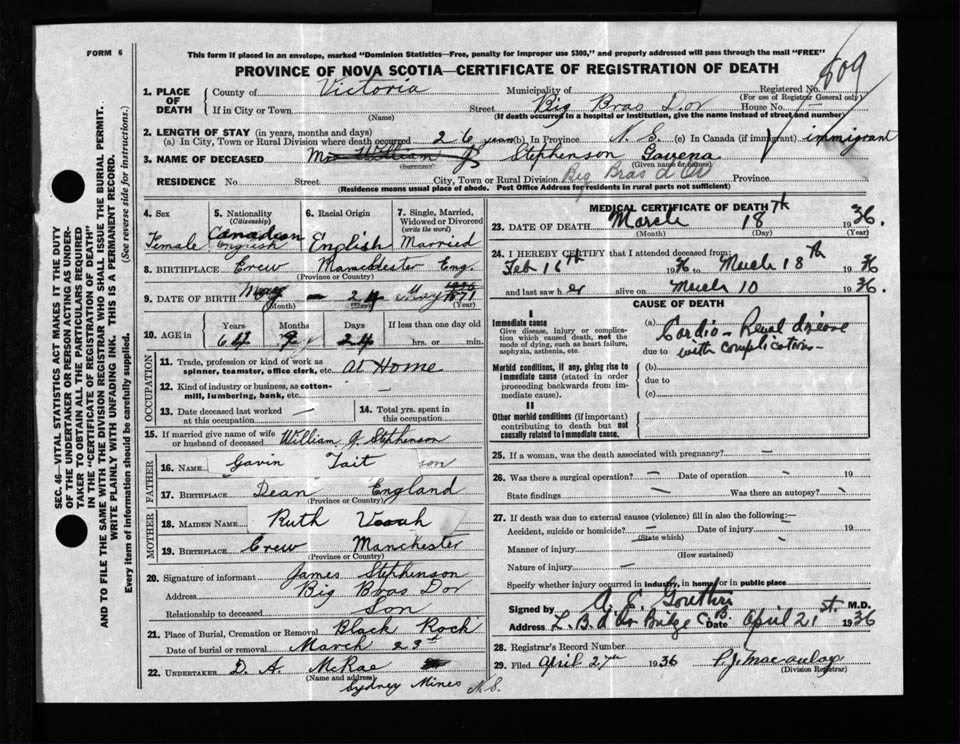 FORM 6
This form if placed in an envelope, marked "Dominion Statistics—Free, penalty for improper use $300," and properly addressed will pass through the mail "FREE"
PROVINCE OF NOVA SCOTIA—CERTIFICATE OF REGISTRATION OF DEATH
809
1. PLACE OF DEATH
County of Victoria Municipality of Registered No.
(For use of Registrar General only)
If in City or Town Street Big Bras D'or House No.
(Name) (If death occurred in a hospital or institution, give the name instead of street and number)
2. LENGTH OF STAY (in years, months and days)
(a) In City, Town or Rural Division where death occurred 26 years (b) In Province N.S. (c) In Canada (if immigrant) immigrant
3. NAME OF DECEASED Mrs William G Stephenson Gavena
(Surname) (Given name or names)
RESIDENCE No. Street City, Town or Rural Division Big Bras d'Or Province
(Residence means usual place of abode. Post Office Address for residents in rural parts not sufficient)
4. Sex Female
5. Nationality (Citizenship) Canadian English
6. Racial Origin English
7. Single, Married, Widowed or Divorced (write the word) Married
8. BIRTHPLACE Crew Manchester Eng.
(Province or Country)
9. DATE OF BIRTH May — 24 May 1871
(Month) (Year)
10. AGE in Years 64 Months 9 Days 24 If less than one day old hrs. or min.
OCCUPATION
11. Trade, profession or kind of work as spinner, teamster, office clerk, etc. At Home
12. Kind of industry or business, as cotton-mill, lumbering, bank, etc. —
13. Date deceased last worked at this occupation —
14. Total yrs. spent in this occupation
15. If married give name of wife or husband of deceased William G. Stephenson
FATHER
16. NAME Gavin Tait son
17. BIRTHPLACE Dean England
(Province or Country)
MOTHER
18. MAIDEN NAME Ruth
19. BIRTHPLACE Crew Manchester
(Province or Country)
20. Signature of informant James Stephenson
Address Big Bras Dor
Relationship to deceased Son
21. Place of Burial, Cremation or Removal Black Rock
Date of burial or removal March 23rd
22. UNDERTAKER D. A. McRae
(Name and address)
Sydney Mines N.S.
MEDICAL CERTIFICATE OF DEATH
23. DATE OF DEATH March 18th 1936.
(Month) (Day) (Year)
24. I HEREBY CERTIFY that I attended deceased from:
Feb 16th 1936 to March 18th 1936
and last saw her alive on March 10 1936.
CAUSE OF DEATH
I
Immediate cause
Give disease, injury or complication which caused death, not the mode of dying, such as heart failure, asphyxia, asthenia, etc.
(a) Cardio-Renal disease
due to with complications
Morbid conditions, if any, giving rise to immediate cause (stated in order proceeding backwards from immediate cause).
(b)
due to
(c)
II
Other morbid conditions (if important) contributing to death but not causally related to immediate cause.
25. If a woman, was the death associated with pregnancy? —
26. Was there a surgical operation? — Date of operation 19
State findings — Was there an autopsy?
27. If death was due to external causes (violence) fill in also the following:—
Accident, suicide or homicide? — Date of injury 19
(State which)
Manner of injury
(How sustained)
Nature of injury —
Specify whether injury occurred in industry, in home, or in public place
Signed by A. E. M.D.
Address C.B. Date April 21st. 1936
28. Registrar's Record Number
29. Filed April 27th 1936 P. J. Macaulay
(Division Registrar)
SEC. 46—VITAL STATISTICS ACT MAKES IT THE DUTY
OF THE UNDERTAKER OR PERSON ACTING AS UNDERTAKER
TO OBTAIN ALL THE PARTICULARS REQUIRED
IN THE "CERTIFICATE OF REGISTRATION OF DEATH"
AND TO FILE THE SAME WITH THE DIVISION REGISTRAR WHO SHALL ISSUE THE BURIAL PERMIT.
WRITE PLAINLY WITH UNFADING INK. THIS IS A PERMANENT RECORD.
Every item of information should be carefully supplied. (See reverse side for instructions.)